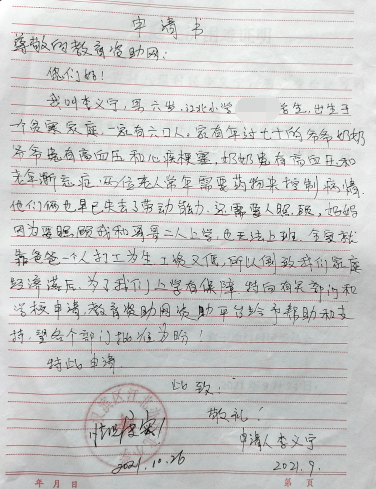 申请书
尊敬的教育资助网：
您们好！
我叫李义宁，男六岁，江北小学 学生，出生于
一个贫寒家庭，一家有六口人，家有年过七十的爷爷奶奶
爷爷患有高血压和心疾梗塞，奶奶患有高血压和
老年渐忘症，两位老人常年需要药物来控制病情，
他们俩也早已失去了劳动能力，还需要人照顾，妈妈
因为要照顾我和哥哥二人上学，也无法上班，全家就
靠爸爸一个人打工为生，工资又低，所以倒致我们家庭
经济滞后，为了我们上学有保障，特向有关部门和
学校申请，教育资助网资助平台给予帮助和支
持，望各个部门批准为盼！
特此申请
此致！
敬礼！
申请人李义宁
2021.10.26
2021.9.
年 月 日
第 页